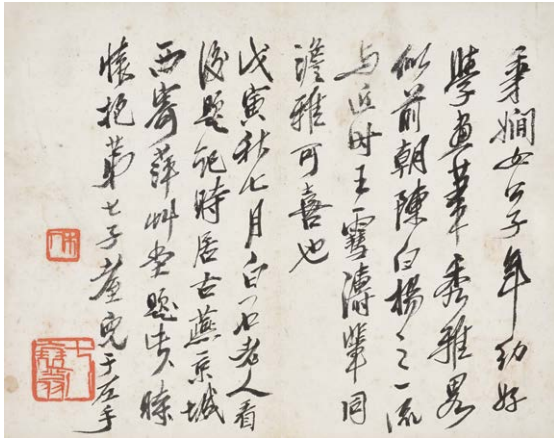 秉嫺女公子年幼好
學畫筆秀雅畧
似前朝陳白楊之一流
与近时王雪濤輩同
澹雅可喜也
戊寅秋七月白石老人看
後題記時居古燕京城
西寄萍艸堂題
懷抱第七子于左手